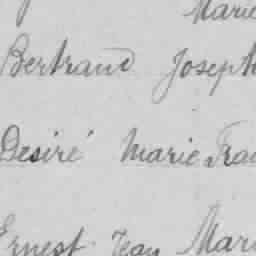 Marie
Bertrand Joseph
Desiré Marie Fra
Ernest Jean Mari